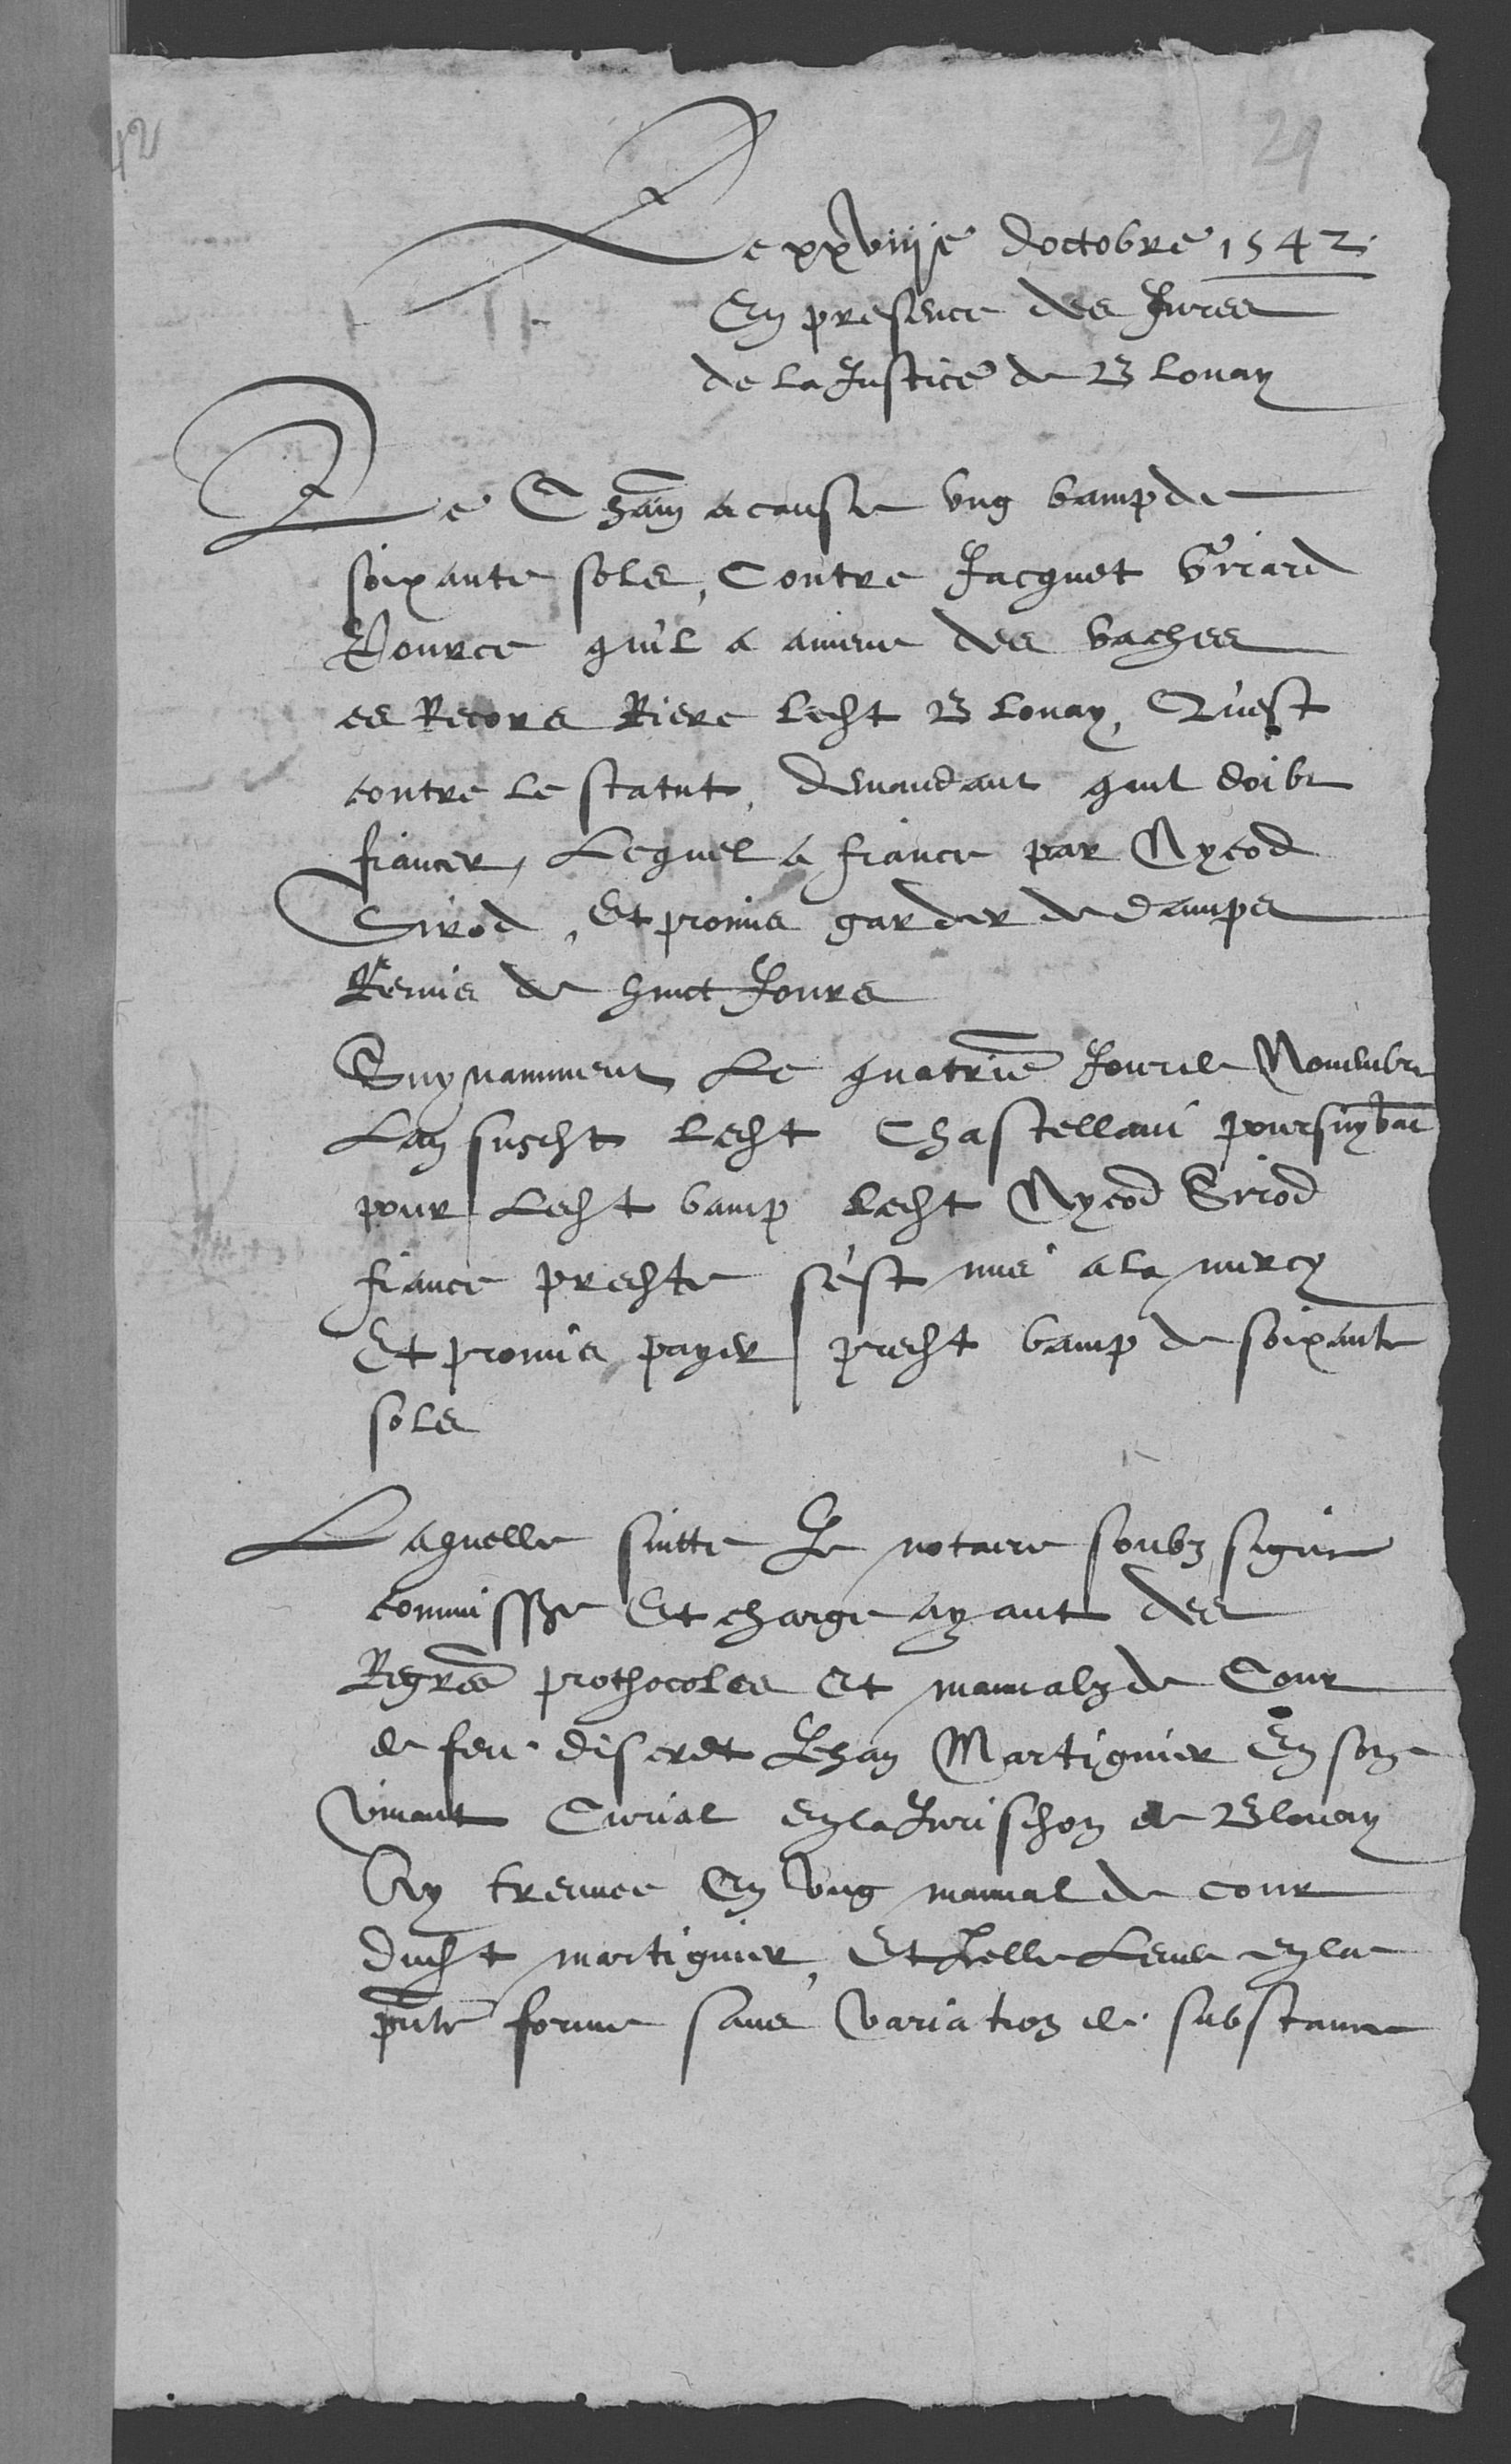 42
29
Le xxviije doctobre 1542.
En presence des Jures
de la Justice de Blonay
Le Cham a cause ung bamp de
soixante sols, Contre Jacquet Girard
Pource qu'il a amene des vaches
es Recors Riere ledt Blonay, Qu'est
contre le statut, demandant quil doibt
fiancer, Lequel a fiance par Nycod
Girod, Et promis garder de damps
Remis de huict Jours
Suynamment Le quatrie Jour de Novembre
Lan susdt ledt Chastellain poursuyvant
pour Ledt bamp ledt Nycod Girod
fiance predte s'est mis a la mercy
Et promis payer predt bamp de soixante
sols
Laquelle suitte Je notaire soubz signe
commissre Et charge ayant des
Regres prothocoles Et manualz de Cour
de feu discret Jehan Martignier En son
vivant Curial en la Jurisdion de Blonay
Ay treuvee En ung manual de cour
dudt martignier, Et Jcelle Levee en la
pnte forme sans variation de substance